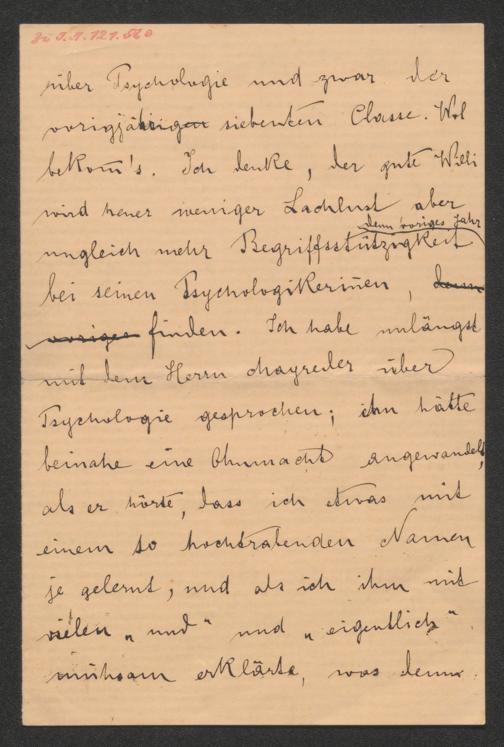 Zu I.N. 121.560
über Psychologie und zwar der
vorigjährigen siebenten Classe. Wol
bekom's. Ich denke, der gute Willi
wird heuer weniger Lachlust aber
denn voriges Jahr
ungleich mehr Begriffsstützigkeit
bei seinen Psychologikerin̄en, denn
voriges finden. Ich habe unlängst
mit dem Herrn Mayreder über
Psychologie gesprochen; ihn hätte
beinahe eine Ohnmacht angewandelt,
als er hörte, dass ich etwas mit
einem so hochtrabenden Namen
je gelernt, und als ich ihm mit
vielen „und“ und „eigentlich“
mühsam erklärte, was denn